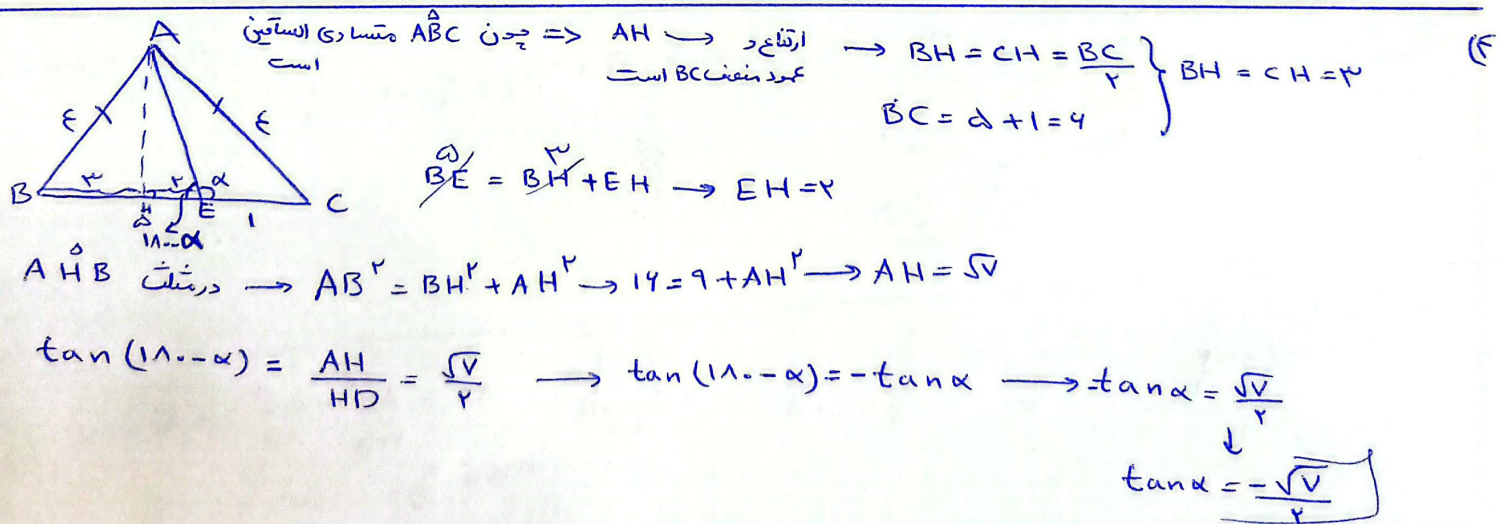 ۴)
چون ABC متساوی الساقین است => AH → ارتفاع و عمود منصف BC است → BH = CH = BC/۲ } BH = CH = ۳
BC = ۵ + ۱ = ۶
A
۴ ۴
B ۳ ۲ α C
H E
۵ ۱
۱۸۰-α
BE = BH + EH → EH = ۲
۵ ۳
AHB درمثلث → AB^۲ = BH^۲ + AH^۲ → ۱۶ = ۹ + AH^۲ → AH = √۷
tan (۱۸۰-α) = AH/HD = √۷/۲ → tan (۱۸۰-α) = -tanα → -tanα = √۷/۲
↓
tanα = -√۷/۲